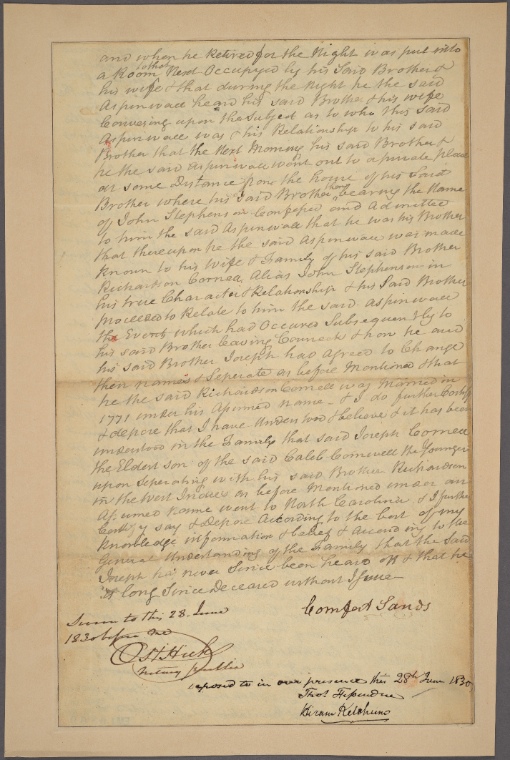 and when he Retired for the Night was put into
a Room Next Occupyed by his Said Brother &
his wife & that during the Night he the said
Aspinwall heard his said Brother & his wife
Conversing upon the Subject as to who this said
Aspinwall was & his Relationship to his said
Brother that the Next Morning his said Brother &
he the said Aspinwall went out to a private place
at some Distance from the house of his Said
Brother where his Said Brother then bearing the Name
of John Stephenson Confessed and Admitted
to him the said Aspinwall that he was his Brother
that thereupon he the said Aspinwall was made
Known to his wife & Family of his said Brother
Richardson Cornell Alias John Stephenson in
his true Character & Relationship & his Said Brother
proceeded to Relate to him the said Aspinwall
the Events which had Occured Subsequently to
his said Brother leaving & how he and
his said Brother Joseph had Agreed to Change
their names & Seperate as before Mentioned & that
he the said Richardson Cornell was Married in
1771 under his Assumed name & I do further Certify
& depose that I have Understood & believe & it has been
understood in the Family that said Joseph Cornell
the Eldest son of the said Caleb Cornwell the Younger
upon Seperating with his said Brother Richardson
in the West Indies as before Mentioned under an
Assumed name went to North Carolina & I further
Certify say & depose According to the best of my
Knowledge information & belief & According to the
General Understanding of the Family that the Said
Joseph has never Since been heard of & that he
is long Since Deceased without Issue
Comfort Sands
Sworn to this 28 June
1830 before me
Notary public
deposed to in our presence this 28th June 1830
Thos
Hiram Ketchum